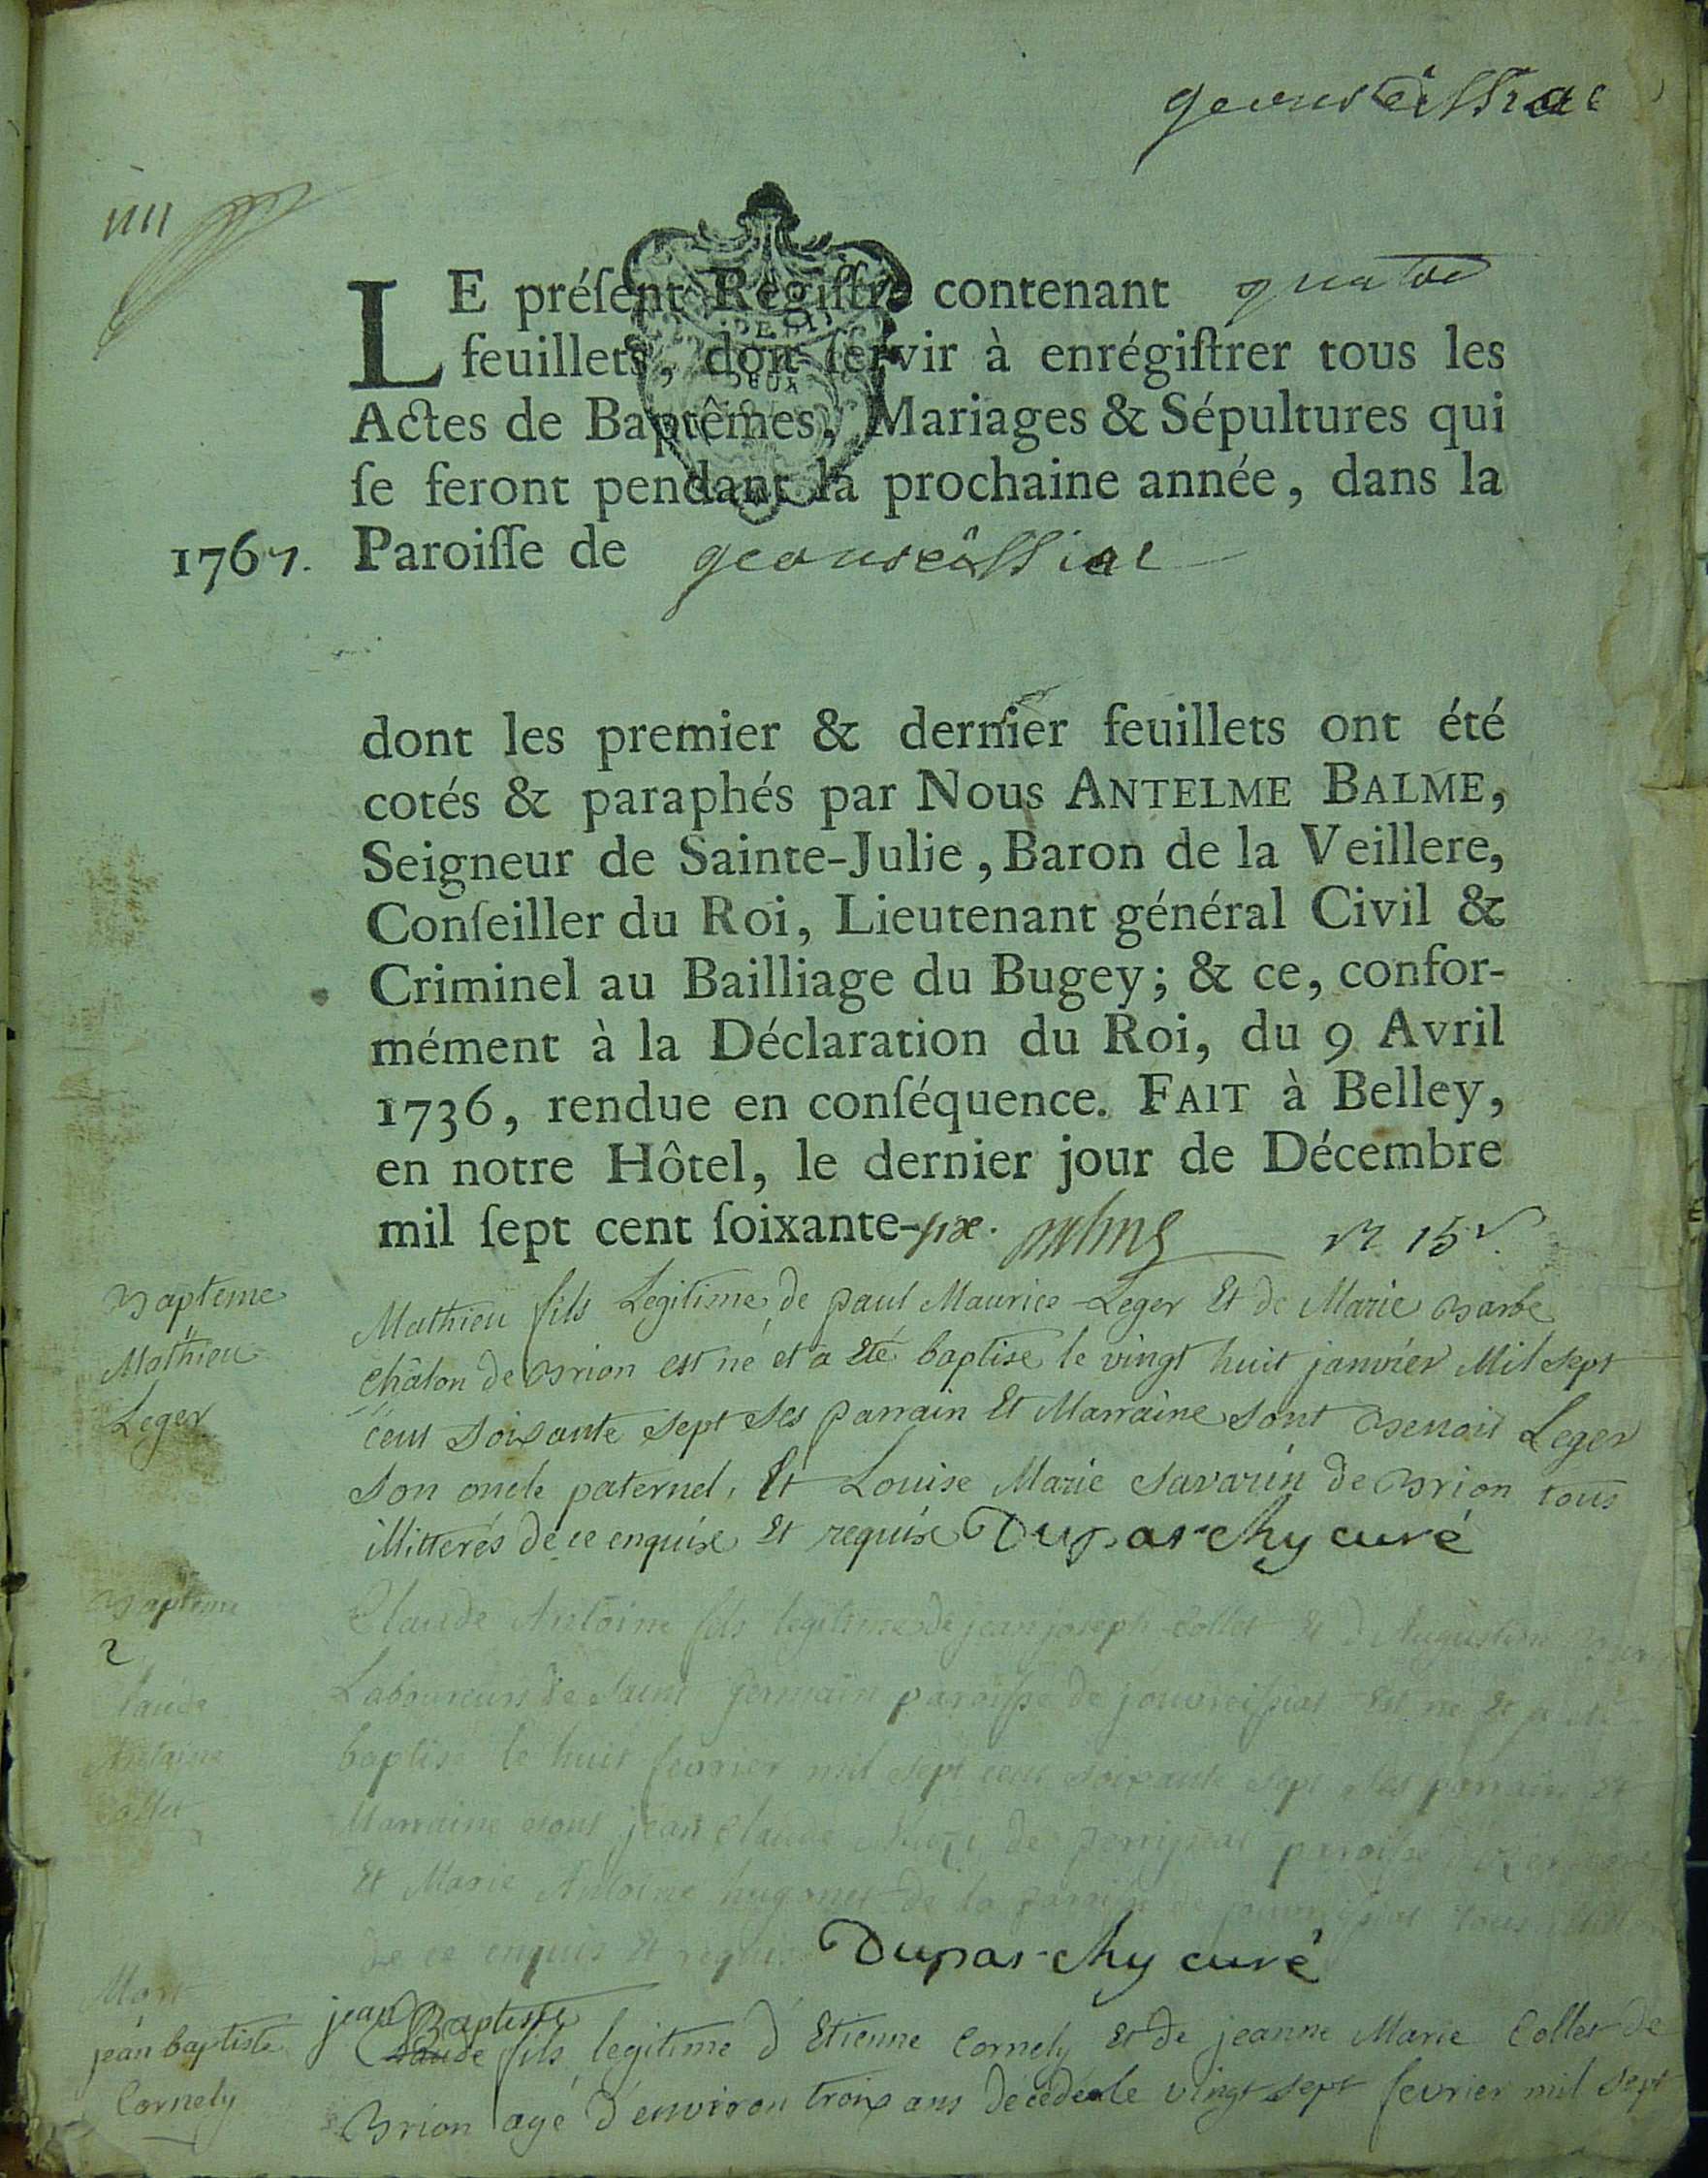 geovreissiac
1111
LE préſent Regiſtre contenant quatre
feuillets, doit ſervir à enrégiſtrer tous les
Actes de Baptêmes, Mariages & Sépultures qui
ſe feront pendant la prochaine année, dans la
1767. Paroiſſe de geovreissiac
DEUX
dont les premier & dernier feuillets ont été
cotés & paraphés par Nous ANTELME BALME,
Seigneur de Sainte-Julie, Baron de la Veillere,
Conſeiller du Roi, Lieutenant général Civil &
Criminel au Bailliage du Bugey; & ce, confor-
mément à la Déclaration du Roi, du 9 Avril
1736, rendue en conſéquence. FAIT à Belley,
en notre Hôtel, le dernier jour de Décembre
mil ſept cent ſoixante-six. Balme
Bapteme
Mathieu
Leger
Mathieu fils Legitime de paul Maurice Leger Et de Marie Barbe
châlon de Brion est né et a Eté baptisé le vingt huit janvier Mil sept
cent soixante sept ses parrain Et Marraine sont Benoit Leger
son oncle paternel, Et Louise Marie Savarin de Brion tous
illitterés de ce enquis Et requis Duparchy curé
Bapteme
2
Claude
Antoine
Collet
Claude Antoine fils legitime de jean joseph Collet Et d'Augustine
Laboureurs de Saint germain paroisse de jouvreissiat Est né Et a été
baptisé le huit fevrier mil sept cent soixante sept ses parrain Et
Marraine sont jean claude de perrignat paroisse
Et Marie Antoine hugonet de la paroisse de tous
de ce enquis Et requis Duparchy curé
Mort
jean baptiste
Cornely
jean Baptiste
Claude fils legitime d'Etienne Cornely Et de jeanne Marie Collet de
Brion agé d'environ trois ans décédé le vingt sept fevrier mil sept